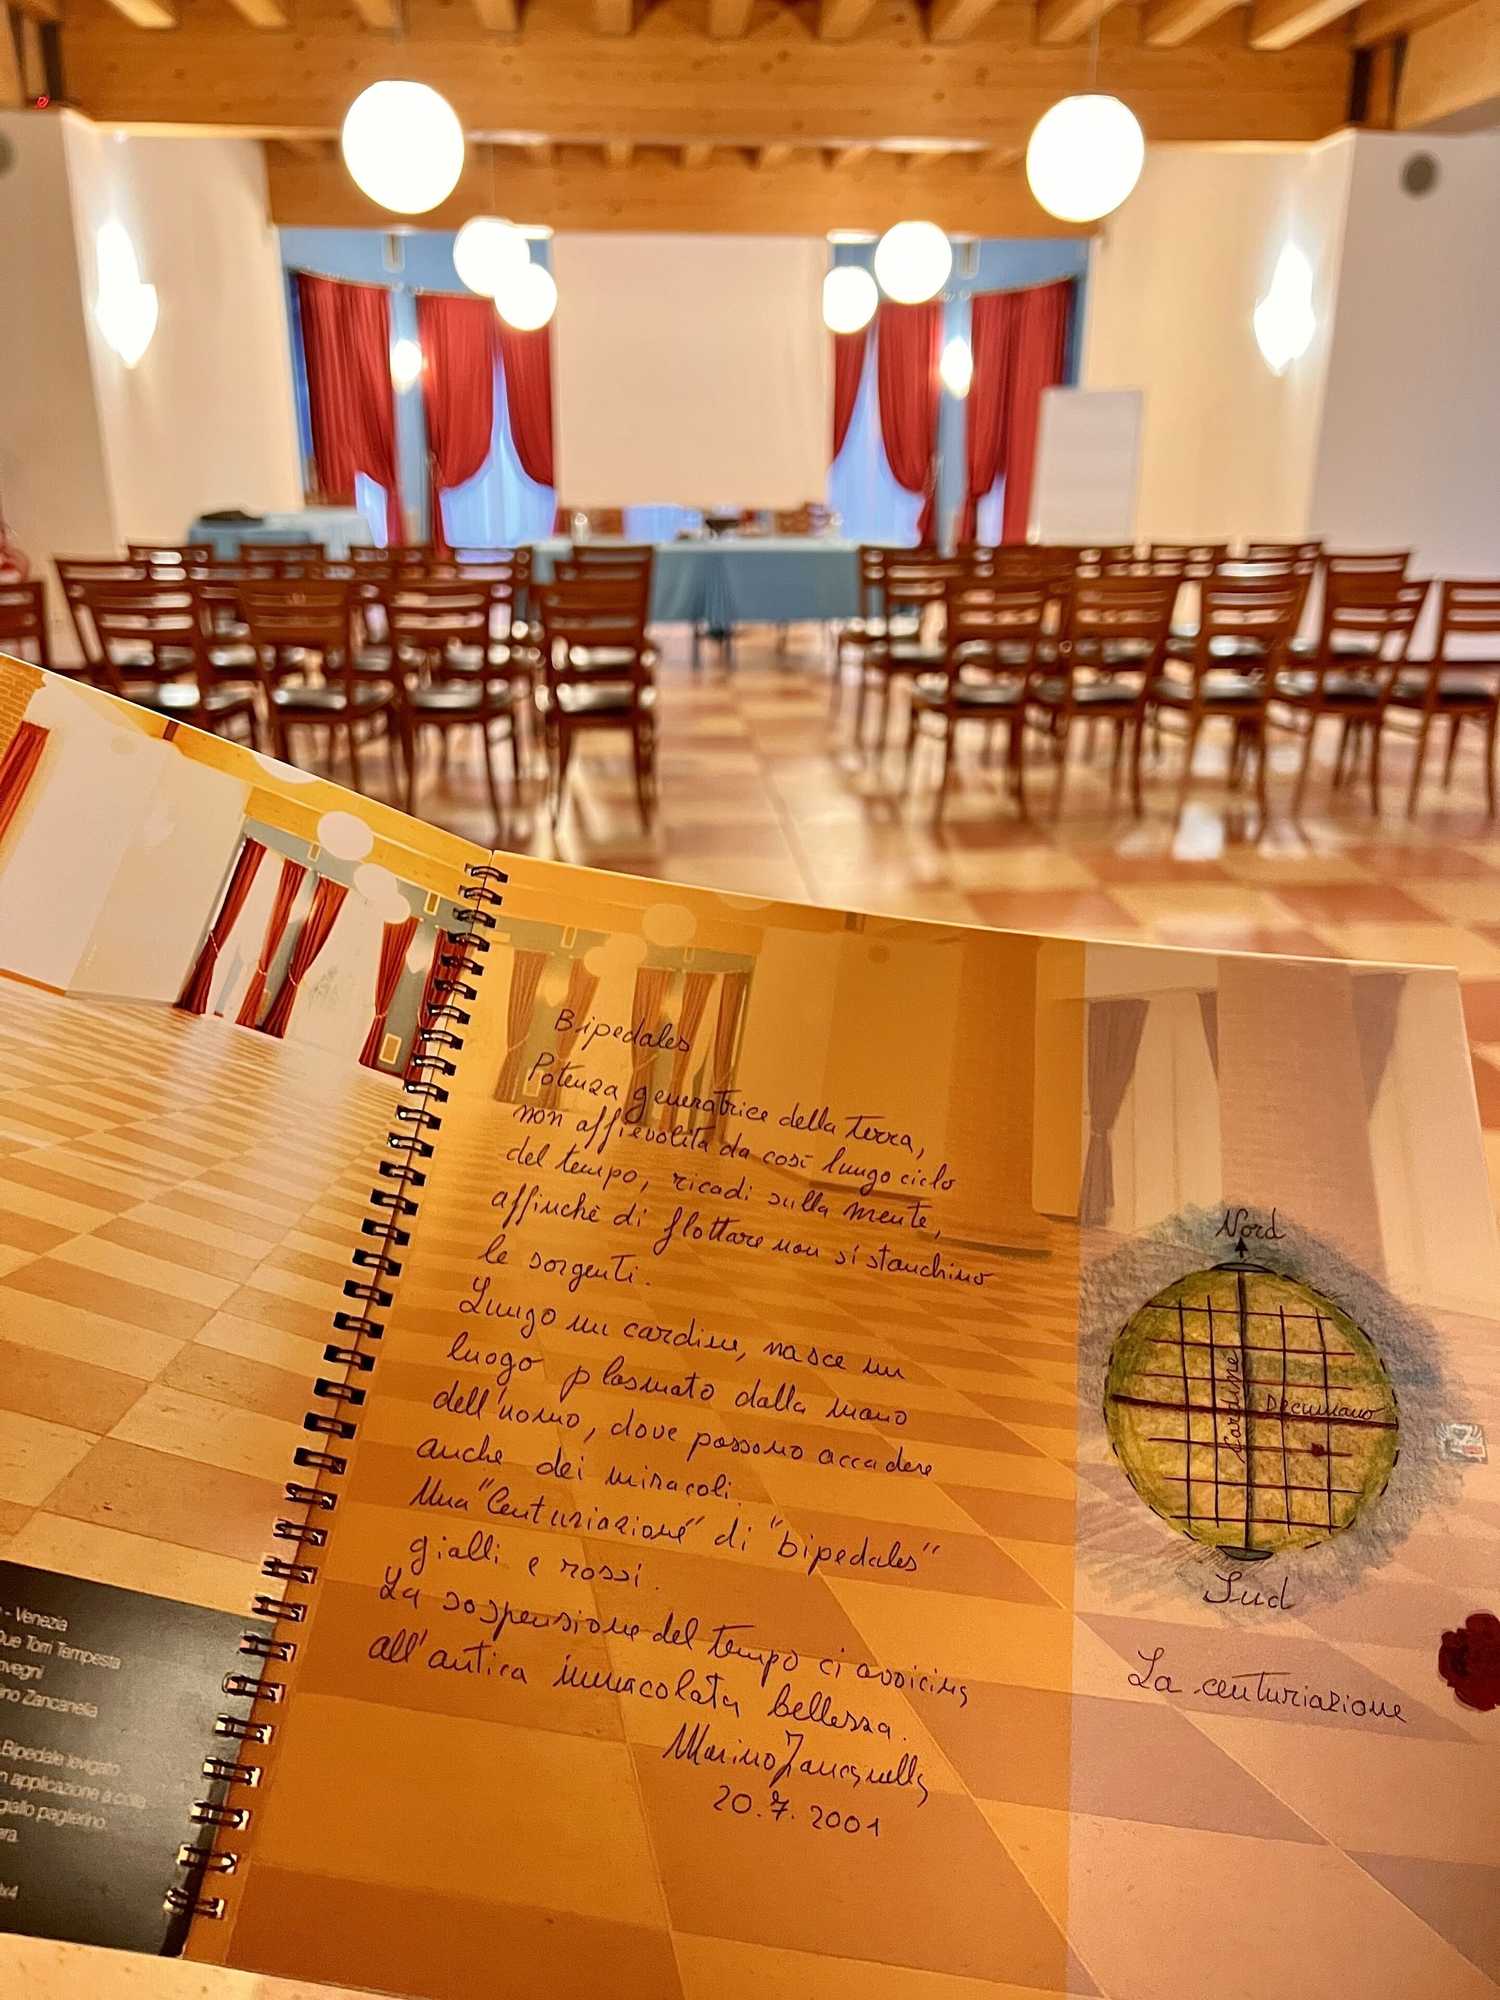 Bipedales
Potenza generatrice della terra,
non affievolita da così lungo ciclo
del tempo, ricadi sulla mente,
affinchè di flottare non si stanchino
le sorgenti.
Lungo un cardine, nasce un
luogo plasmato dalla mano
dell'uomo, dove possono accadere
anche dei miracoli.
Una "Centuriazione" di "bipedales"
gialli e rossi.
La sospensione del tempo ci avvicina
all'antica immacolata bellezza.
Marino Zancanella
20.7.2001
Nord
Cardine
Decumano
Sud
La centuriazione
- Venezia
Due Torri Tempesta
nvegni
ino Zancanella
Bipedale levigato
n applicazione a colla
giallo paglierino.
era.
x4